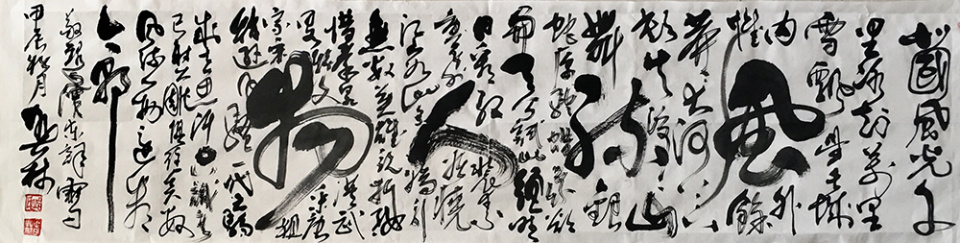 北國风光千
里冰封万里
雪飘望长城
内外
惟餘
莽莽大河上下
顿失滔滔山
舞銀
蛇原驰蜡象欲
與天公試比高須晴
日看红装素
裹分外妖娆
江山如此多嬌引
無數英雄競折腰
惜秦皇漢武
略输文采唐
宗宋祖
稍逊风骚一代天驕
成吉思汗只識彎
弓射大雕俱往矣数
风流人物还看
今朝
风流人物
甲辰秋月